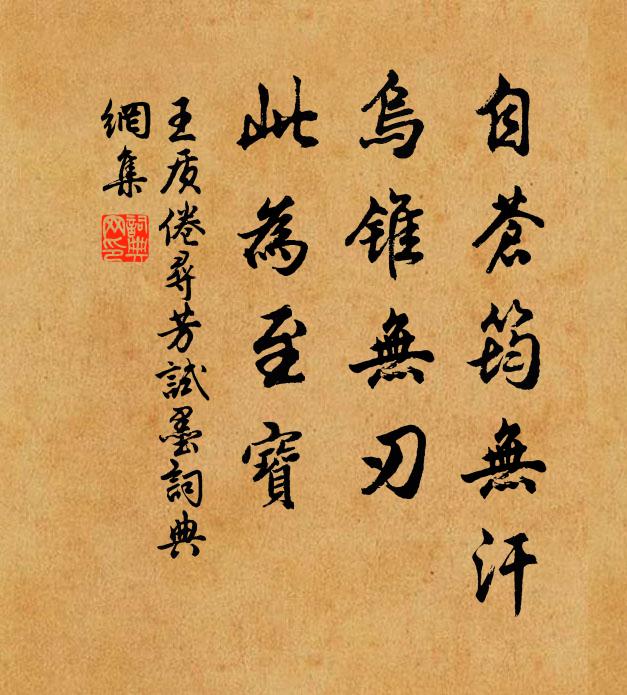 自蒼筠無汗
烏錐無刃
此為至寶
王質倦尋芳試墨詞典
網集
詞典
网印